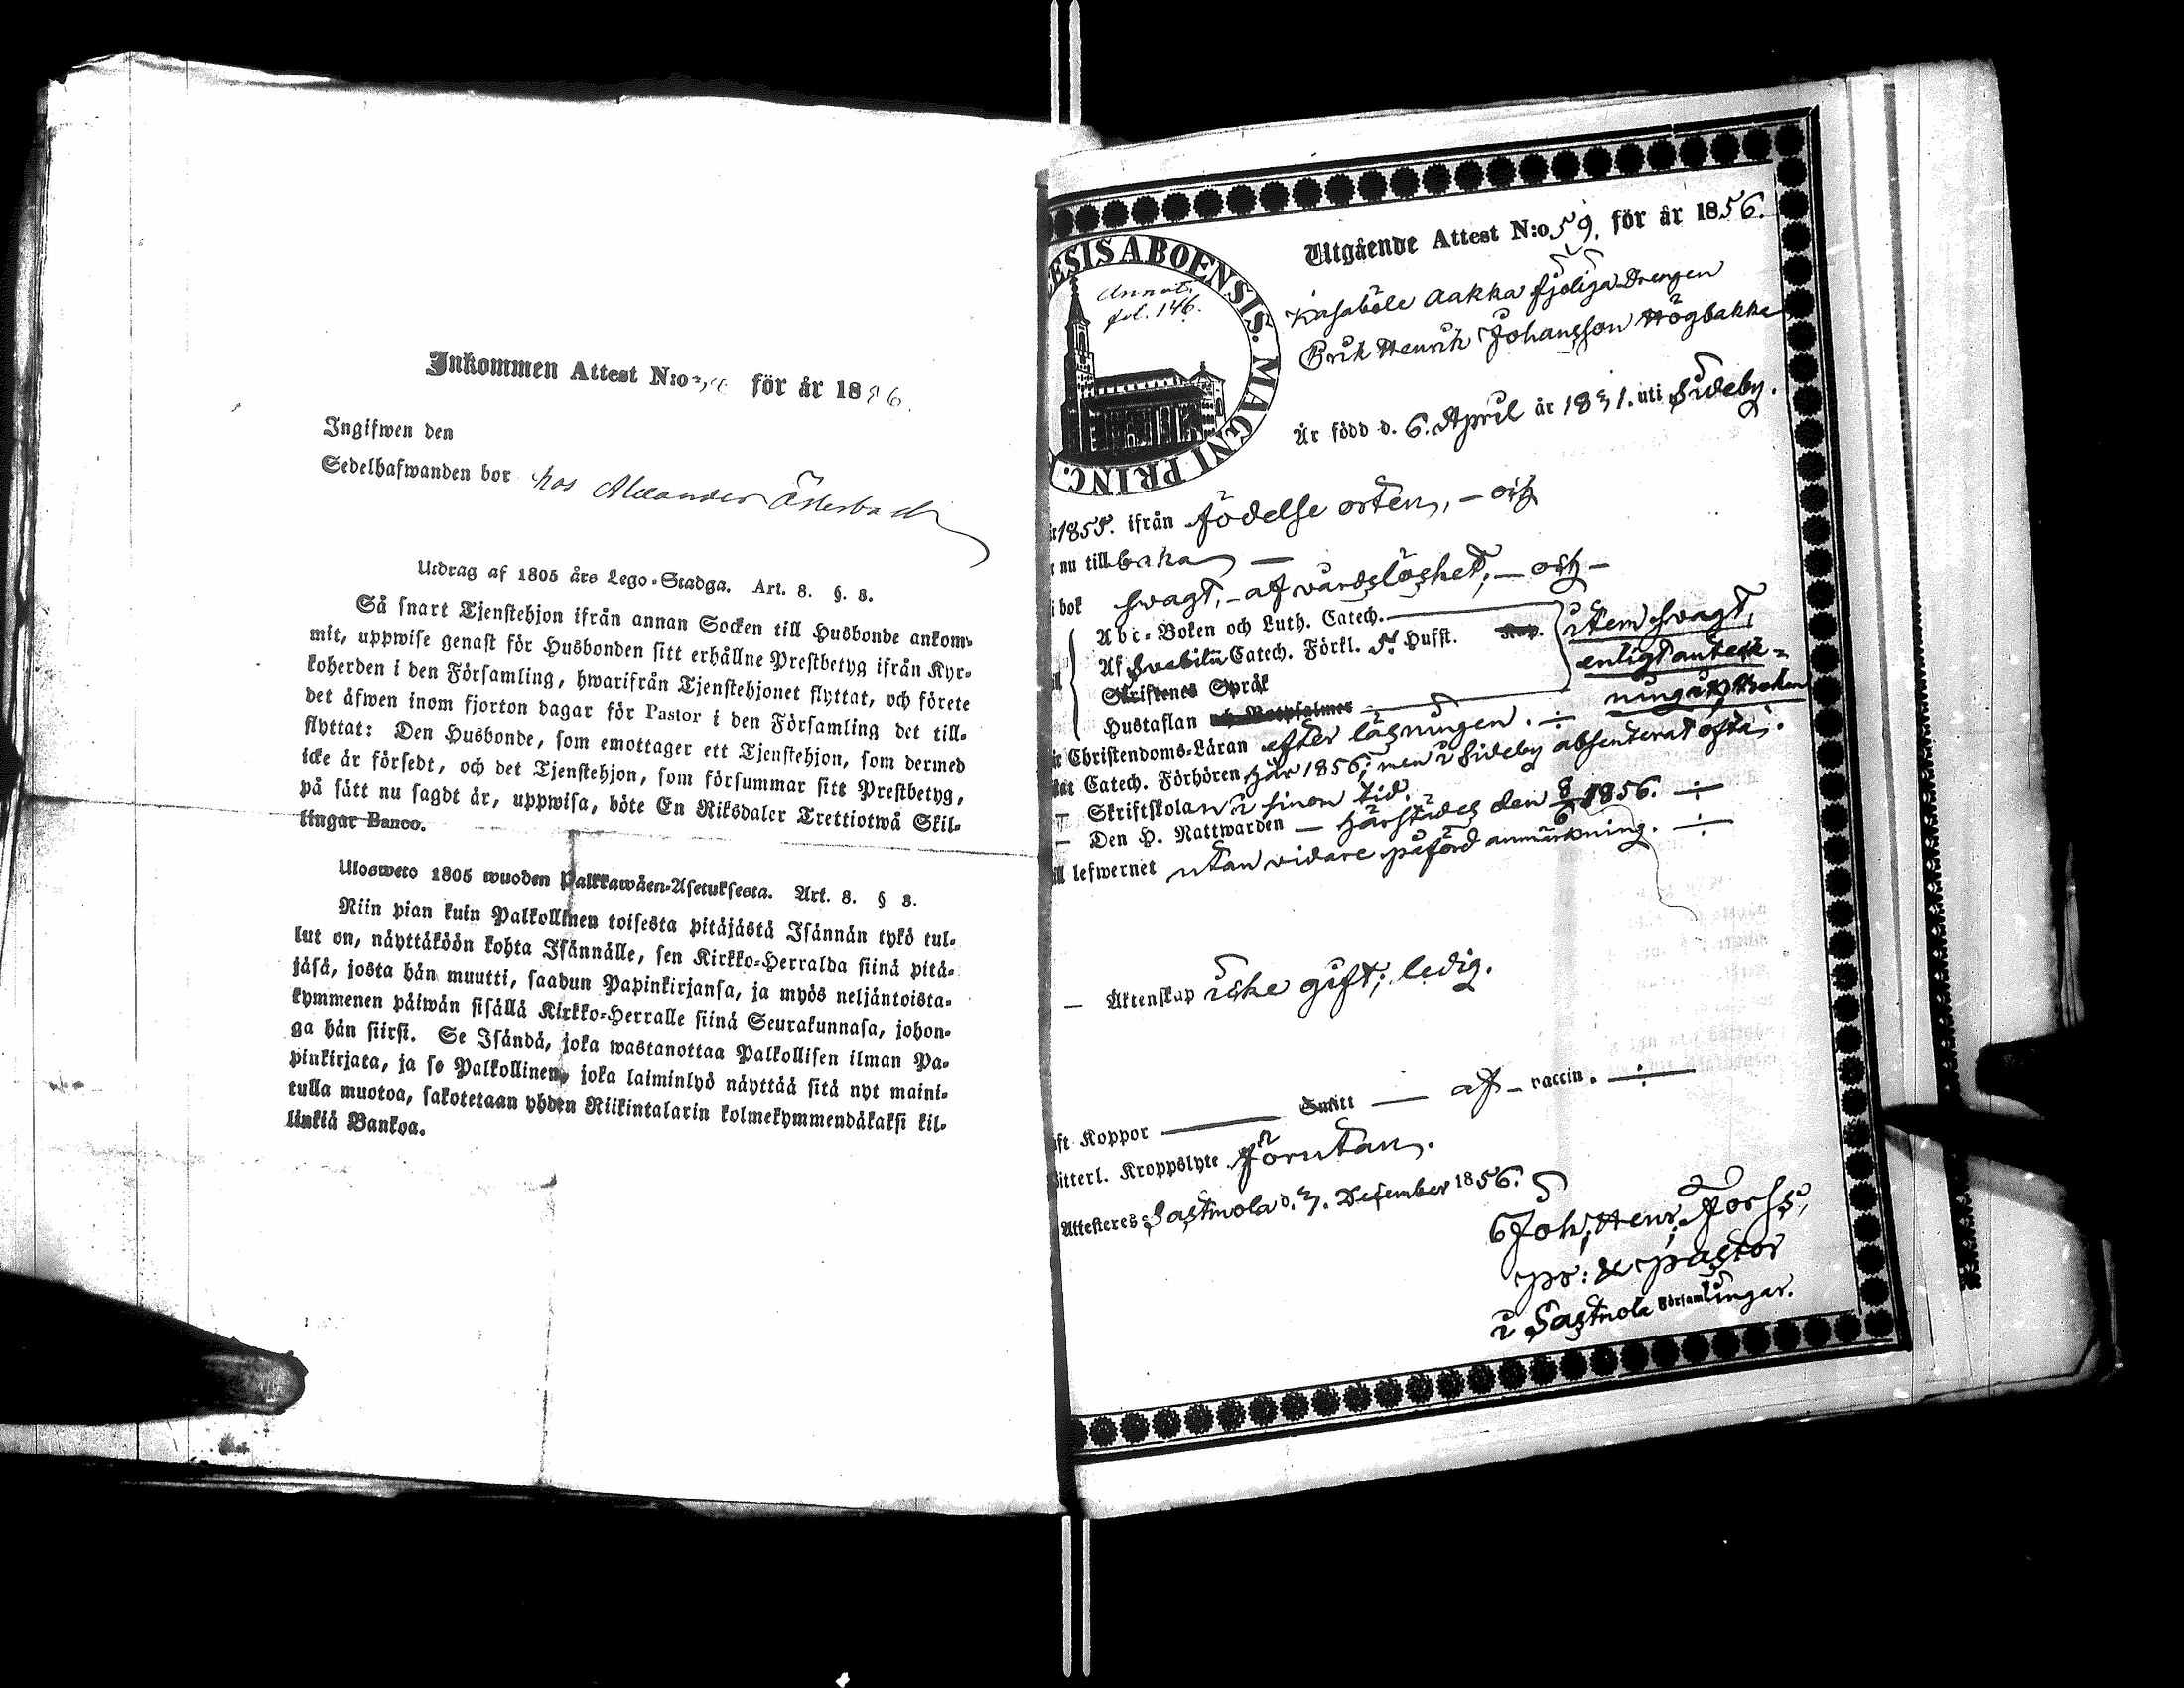 Inkommen Attest N:o för år 18
Ingifwen den
Sedelhafwanden bor hos Alexander Österback
Utdrag af 1805 års Lego-Stadga. Art. 8. §. 8.
Så snart Tjenstehjon ifrån annan Socken till Husbonde ankom-
mit, uppwise genast för Husbonden sitt erhållne Prestbetyg ifrån Kyr-
koherden i den Församling, hwarifrån Tjenstehjonet flyttat, och förete
det äfwen inom fjorton dagar för Pastor i den Församling det till-
flyttat: Den Husbonde, som emottager ett Tjenstehjon, som dermed
icke är försedt, och det Tjenstehjon, som försummar sitt Prestbetyg,
på sätt nu sagdt är, uppwisa, böte En Riksdaler Trettiotwå Skil-
lingar Banco.
Ulosweto 1805 wuoden Palkkawäen-Asetuksesta. Art. 8. § 8.
Niin pian kuin Palkollinen toisesta pitäjästä Isännän tykö tul-
lut on, näyttäköön kohta Isännälle, sen Kirkko-Herralda siinä pitä-
jäsä, josta hän muutti, saadun Papinkirjansa, ja myös neljäntoista-
kymmenen päiwän sisällä Kirkko-Herralle siinä Seurakunnasa, johon-
ga hän siirsi. Se Isändä, joka wastanottaa Palkollisen ilman Pa-
pinkirjata, ja se Palkollinen, joka laiminlyö näyttää sitä nyt maini-
tulla muotoa, sakotetaan yhden Riikintalarin kolmekymmendäkaksi kil-
linkiä Bankoa.
ESIS ABOENSIS. MAGNI PRINC.
Annot.
fol. 146.
Utgående Attest N:o 59. för år 1856.
Kasaböle Aakka fjoliga Drengen
Erik Henrik Johansson Högbakka
Är född d. 6. April år 1831. uti Sideby.
1855. ifrån födelse orten, – och
nu tillbaka –
i bok swagt, – af vårdslöshet, – och –
Abc-Boken och Luth. Catech. item swagt,
Af Svebilii Catech. Förkl. 5. Hufst. enligt anteck-
Skriftenes Språk
Hustaflan
Christendoms-Läran efter läsningen. ÷
Catech. Förhören här 1856; men i Sideby absenterat ofta;.
– Skriftskolan i sinom tid.
– Den H. Nattwarden – härstädes den 8/6 1856. ÷
lefwernet utan vidare påförd anmärkning. ÷
– Äktenskap icke gift; ledig.
Koppor —— Smitt — af – vaccin. ÷
Kroppslyte Förutan.
Attesteres: Sastmola d. 3. December 1856.
Joh; Henr; Forss,
pr: & pastor
i Sastmola Församlingar.